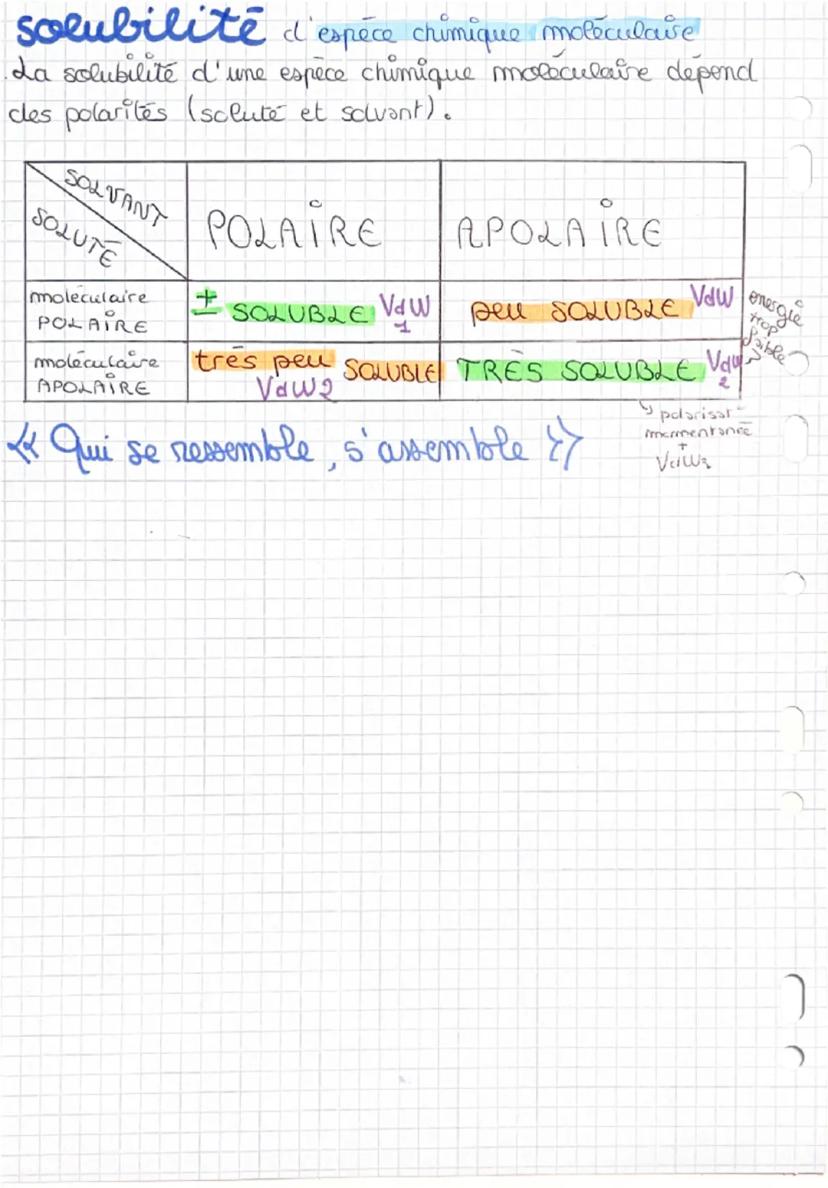 solubilité d'espèce chimique moléculaire
La solubilité d'une espèce chimique moléculaire dépend
des polarités (soluté et solvant).
SOLVANT
SOLUTÉ
POLAIRE
APOLAIRE
moléculaire
POLAIRE
± SOLUBLE VdW
1
peu SOLUBLE VdW
énergie
trop
faible
moléculaire
APOLAIRE
très peu SOLUBLE
VdW2
TRÈS SOLUBLE VdW
2
↳ polarisat°
momentanée
+
VdW2
« Qui se ressemble, s'assemble »